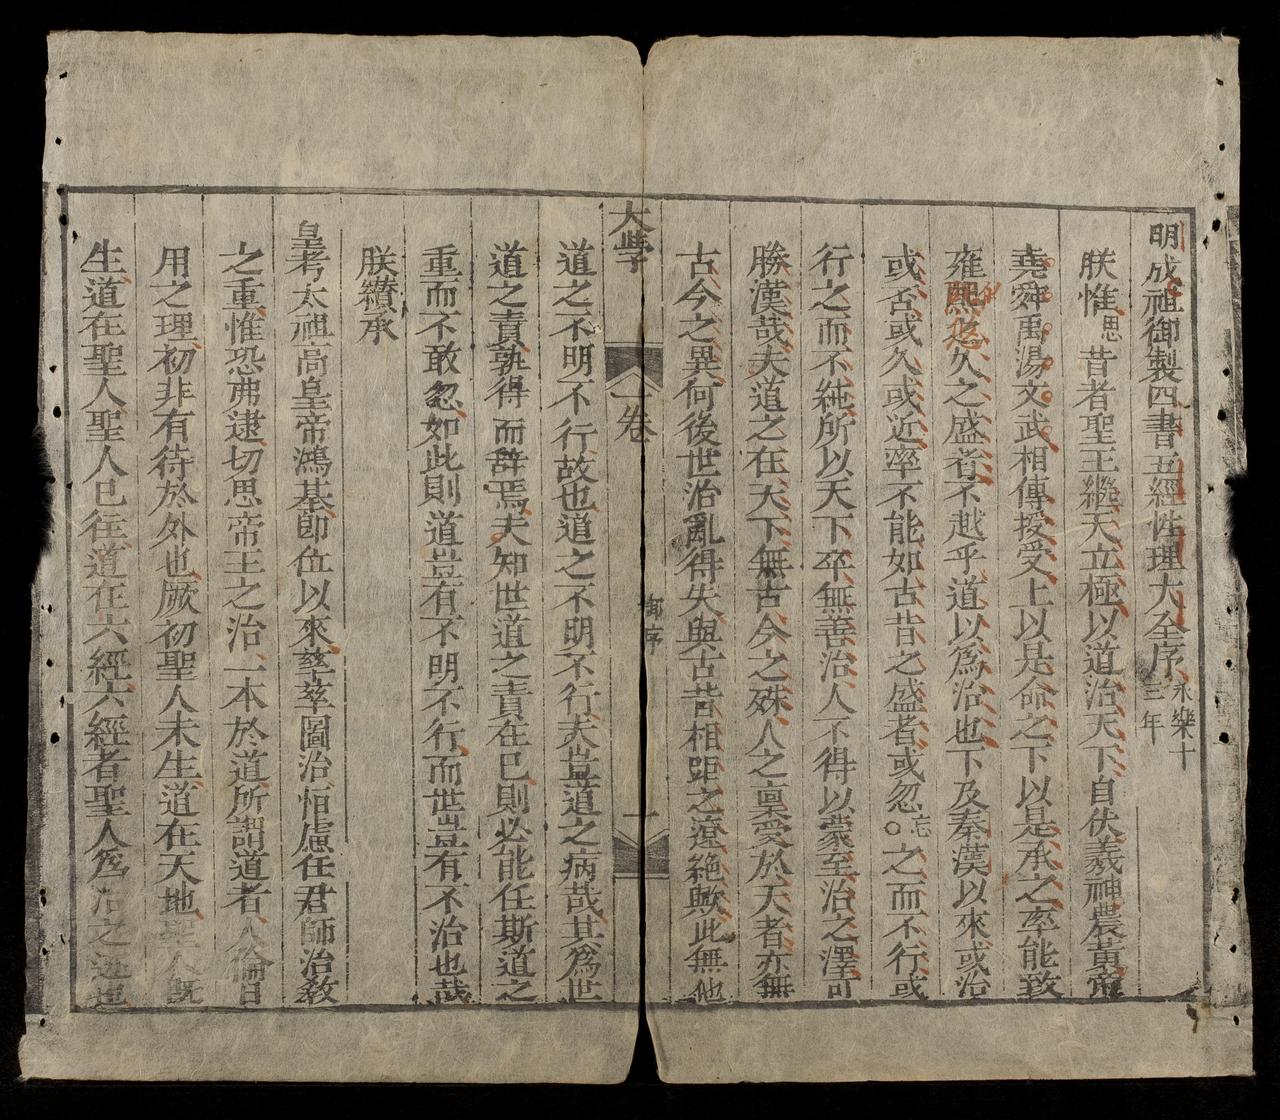 明成祖御製四書五經性理大全序永樂十三年
朕惟思昔者聖王繼天立極以道治天下自伏羲神農黃帝
堯舜禹湯文武相傳授受上以是命之下以是承之率能致
雍熙悠久之盛者不越乎道以爲治也下及秦漢以來或治
或否或久或近率不能如古昔之盛者或忽忘○之而不行或
行之而不純所以天下卒無善治人不得以蒙至治之澤可
勝漢哉夫道之在天下無古今之殊人之禀受於天者亦無
古今之異何後世治亂得失與古昔相距之遼絶歟此無他
大學
一卷
御序
一
道之不明不行故也道之不明不行夫豈道之病哉其爲世
道之責孰得而辭焉夫知世道之責在已則必能任斯道之
重而不敢忽如此則道豈有不明不行而世豈有不治也哉
朕纘承
皇考太祖高皇帝鴻基卽位以來孳孳圖治恒慮任君師治敎
之重惟恐弗逮切思帝王之治一本於道所謂道者人倫日
用之理初非有待於外也厥初聖人未生道在天地聖人旣
生道在聖人聖人已往道在六經六經者聖人爲治之迹也